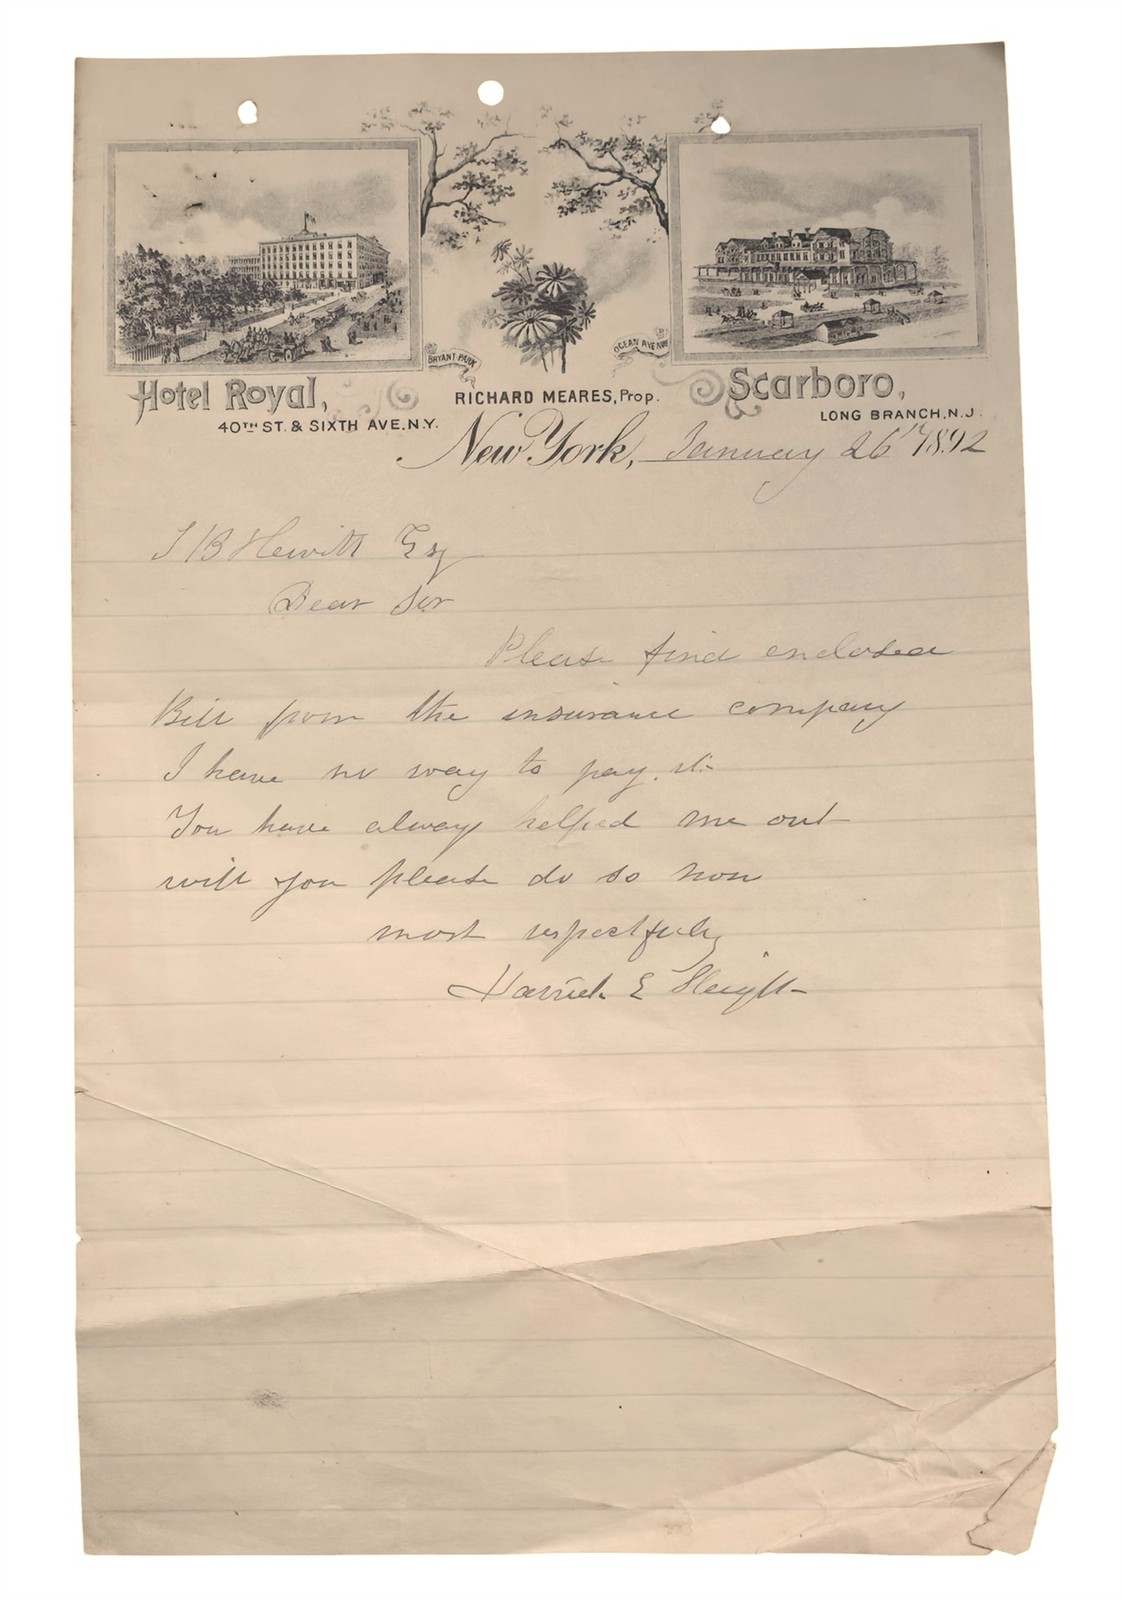 BRYANT PARK
OCEAN AVENUE
Hotel Royal,
40TH ST. & SIXTH AVE. N.Y.
RICHARD MEARES, Prop.
Scarboro,
LONG BRANCH, N.J.
New York, January 26" 1892
B Hewitt Esq
Dear Sir
Please find enclosed
Bill from the insurance company
I have no way to pay it
You have always helped me out
will you please do so now
most respectfully
Harriet E Sleight